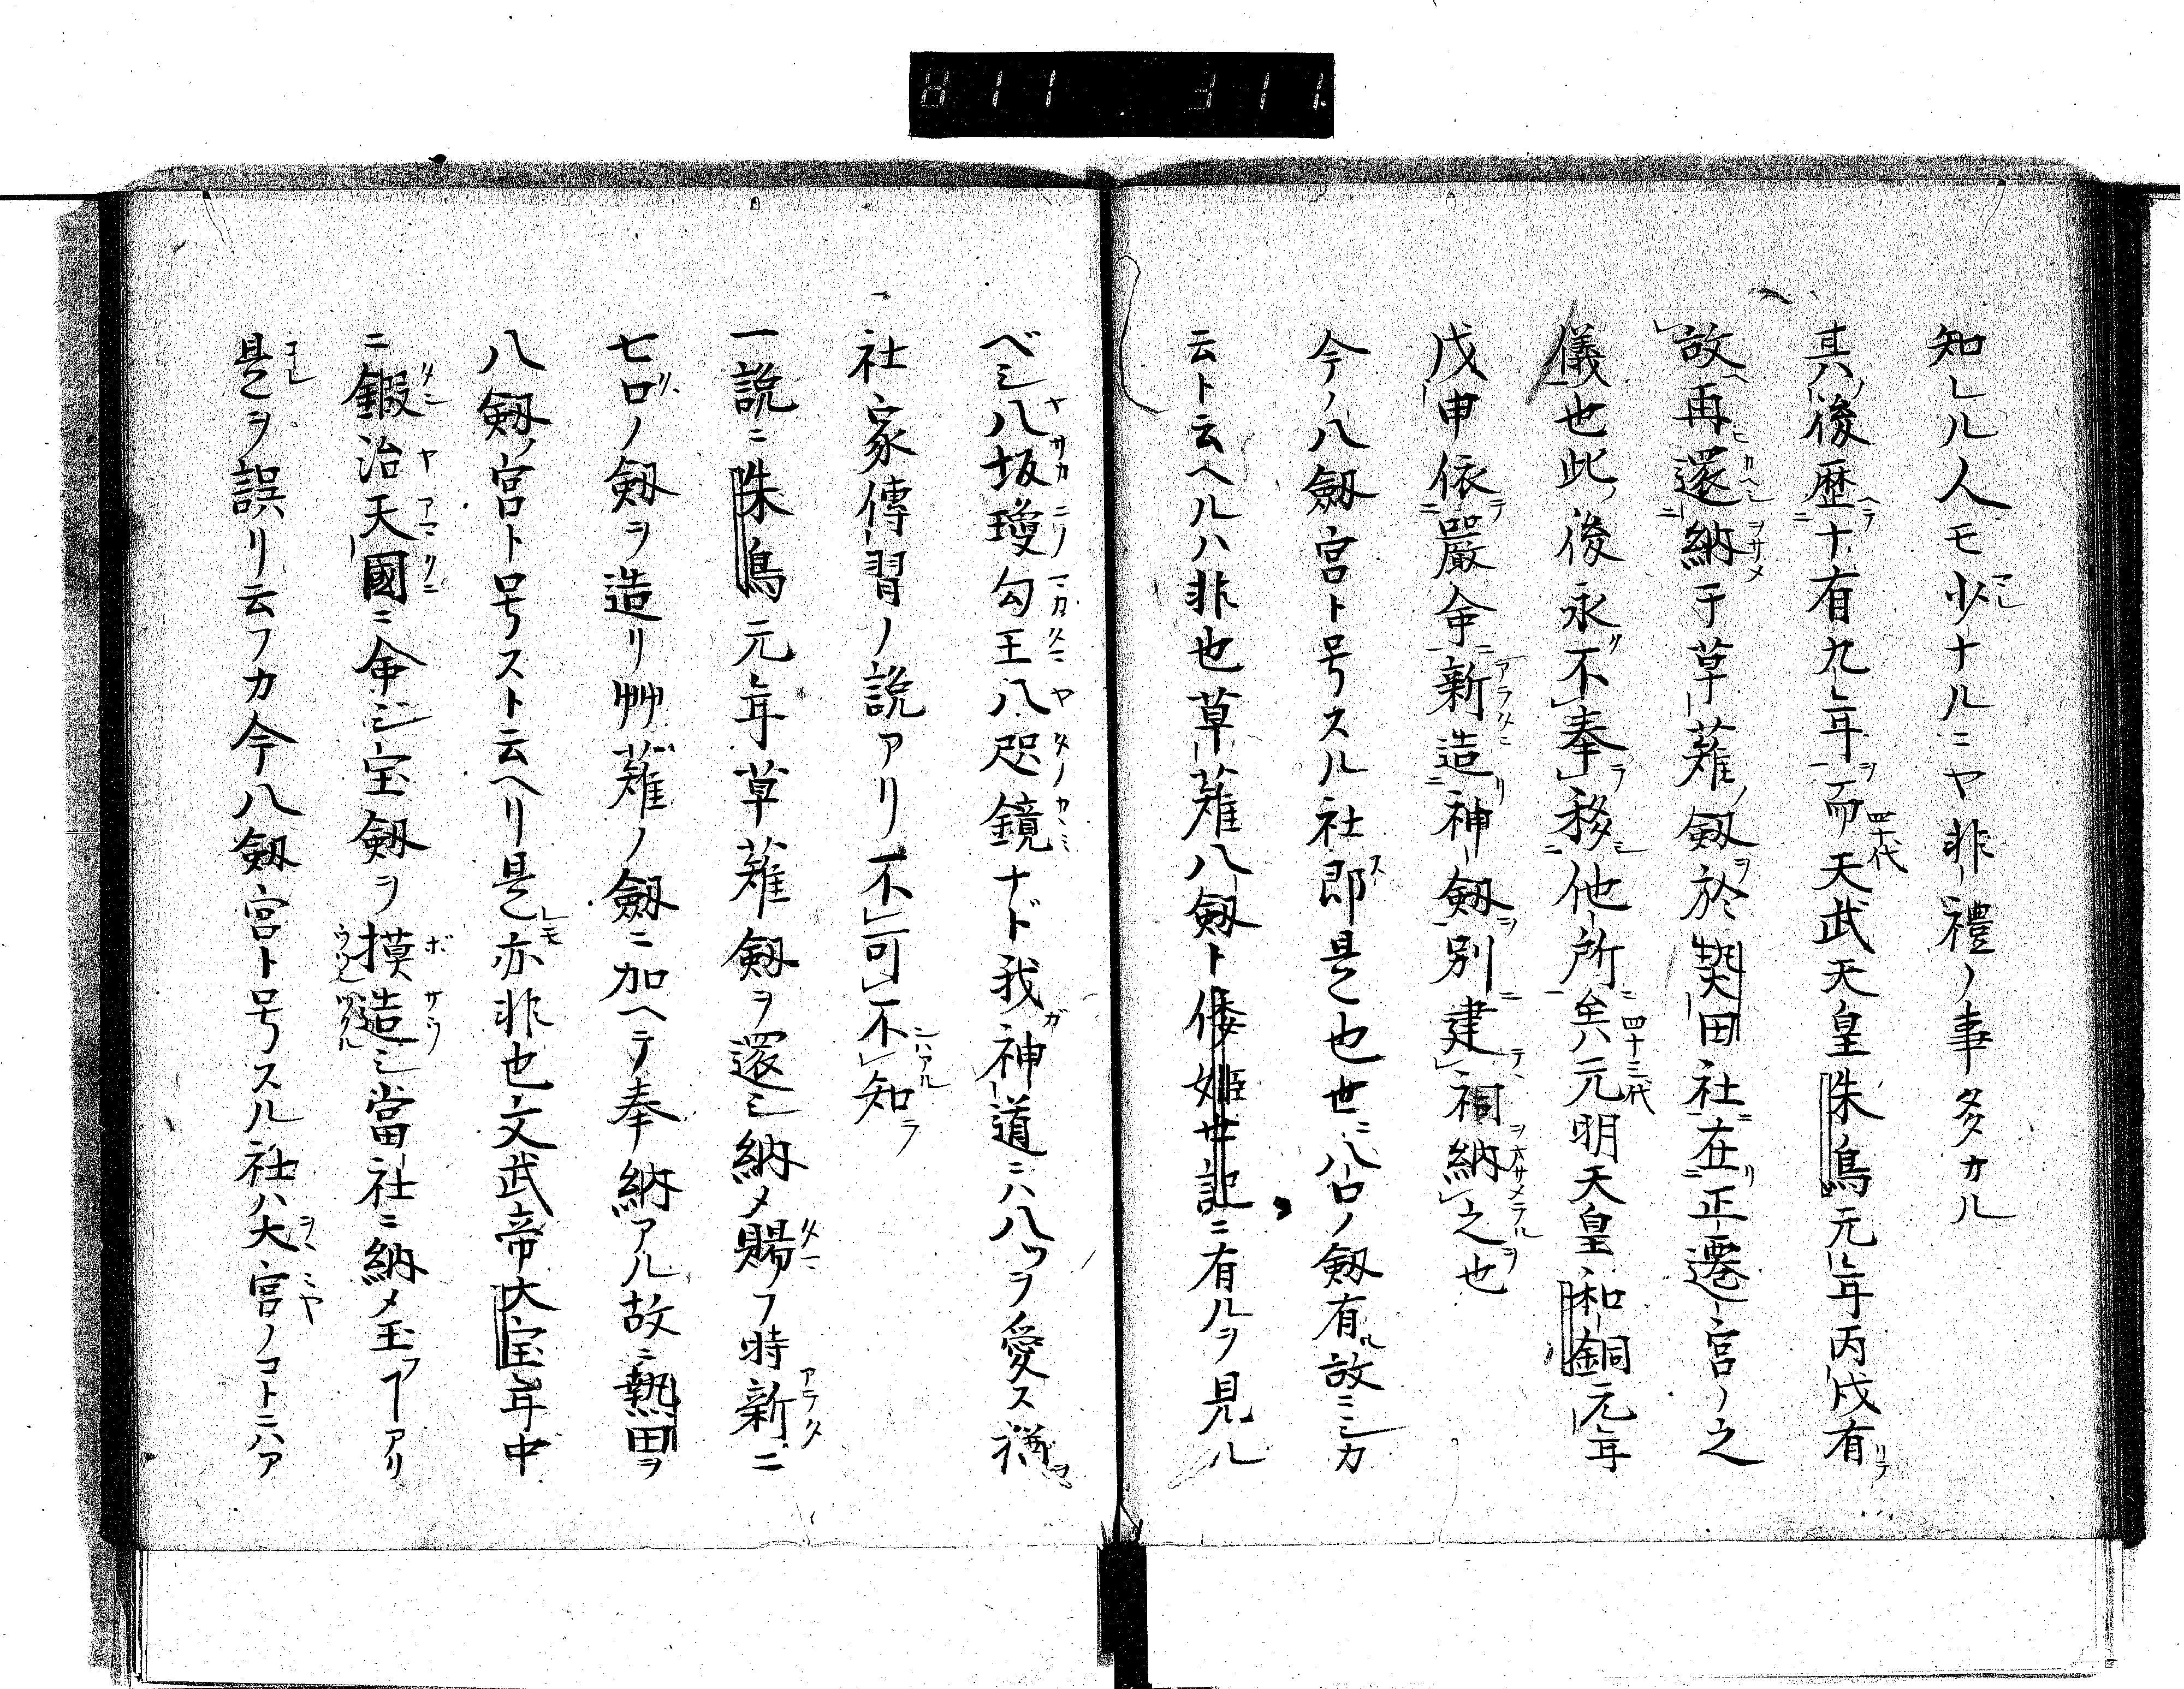 知レル人モ少ナルニヤ非禮ノ事多カル
其後歴十有九年而天武天皇朱鳥元年丙戌有
故再還納于草薙劔於熱田社在正遷宮ノ之
儀也此後永不奉移他所矣元明天皇和銅元年
戊申依嚴命新造神劔別建祠納之也
今ノ八劔宮ト号スル社即是也世ニ八口ノ劔有故ニシカ
云ト云ヘルハ非也草薙八劔ト倭姫世記ニ有ルヲ見ル
ベシ八坂瓊勾玉八咫鏡ナド我神道ニハ八ツヲ愛ス
社家傳習ノ説アリ不可不知
一説ニ朱鳥元年草薙劔ヲ還シ納メ賜フ時新ニ
七口ノ劔ヲ造リ艸薙ノ劔ニ加ヘテ奉納アル故ニ熱田ヲ
八劔ノ宮ト号スト云ヘリ是亦非也文武帝大宝年中
ニ鍛冶天國ニ命ジ宝劔ヲ摸造シ當社ニ納メ玉フヿアリ
是ヲ誤リ云フカ今八劔宮ト号スル社ハ大宮ノコトニハア